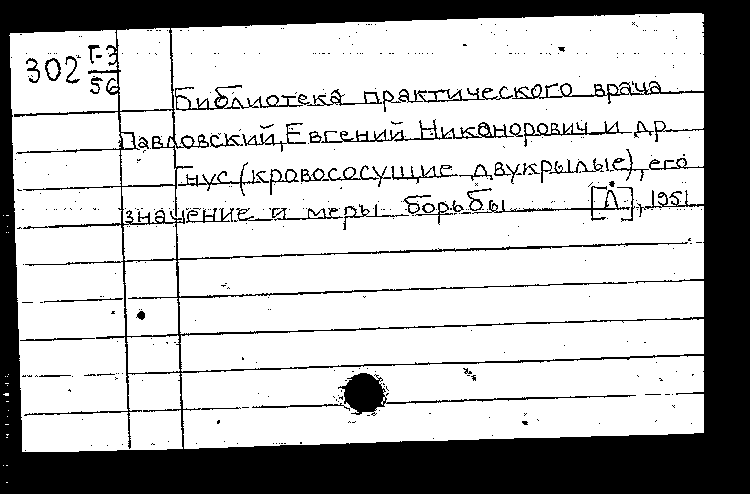 302 Г-3
56
Библиотека практического врача
Павловский, Евгений Никанорович и др.
Гнус (кровососущие двукрылые), его
значение и меры борьбы [Л], 1951